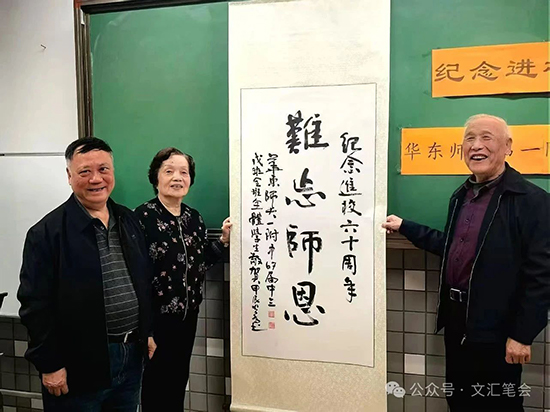 纪念进
华东师 一
纪念進校六十周年
難忘師恩
華東師大一附中67届中三
戊班全體學生敬賀甲辰
公众号·文汇笔会